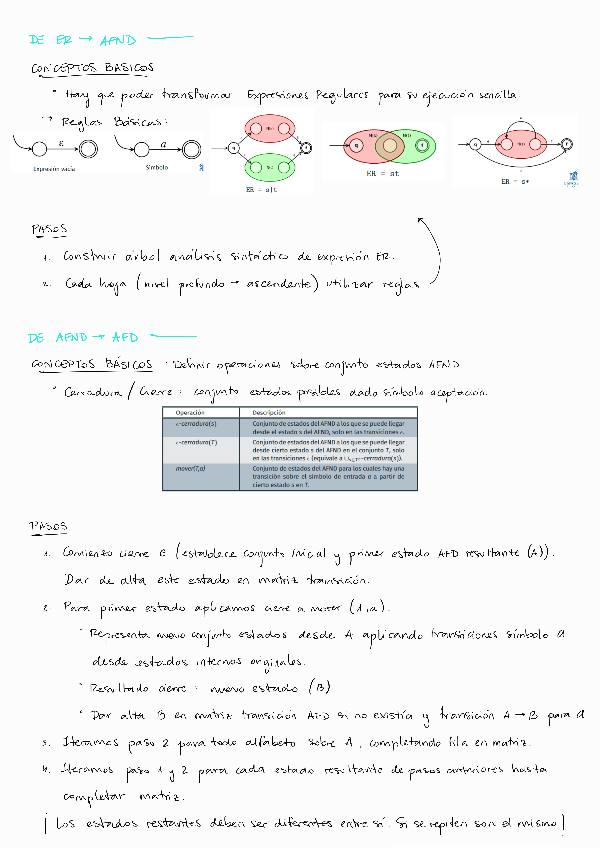 DE ER → AFND
CONCEPTOS BÁSICOS
Hay que poder transformar Expresiones Regulares para su ejecución sencilla.
Reglas Básicas:
ε a
Expresión vacía Símbolo
N(s) N(t) N(s)
q f
ER = s|t ER = st ER = s*
PASOS
1. Construir árbol análisis sintáctico de expresión ER.
2. Cada hoja (nivel profundo → ascendente) utilizar reglas
DE AFND → AFD
CONCEPTOS BÁSICOS : Definir operaciones sobre conjunto estados AFND
Cerradura / Cierre : conjunto estados posibles dado símbolo aceptación.
Operación Descripción
ε-cerradura(s) Conjunto de estados del AFND a los que se puede llegar
desde el estado s del AFND, solo en las transiciones ε.
ε-cerradura(T) Conjunto de estados del AFND a los que se puede llegar
desde cierto estado s del AFND en el conjunto T, solo
en las transiciones ε (equivale a ∪s∈T ε-cerradura(s)).
mover(T,a) Conjunto de estados del AFND para los cuales hay una
transición sobre el símbolo de entrada a a partir de
cierto estado s en T.
PASOS
1. Comienzo cierre ε (establece conjunto inicial y primer estado AFD resultante (A)).
Dar de alta este estado en matriz transición.
2. Para primer estado aplicamos cierre a mover (A,a).
Representa nuevo conjunto estados desde A aplicando transiciones símbolo a
desde estados internos originales.
Resultado cierre : nuevo estado (B)
Dar alta B en matriz transición AFD si no existía y transición A → B para a
3. Iteramos paso 2 para todo alfabeto sobre A, completando fila en matriz.
4. Iteramos paso 1 y 2 para cada estado resultante de pasos anteriores hasta
completar matriz.
| Los estados restantes deben ser diferentes entre sí. Si se repiten son el mismo |